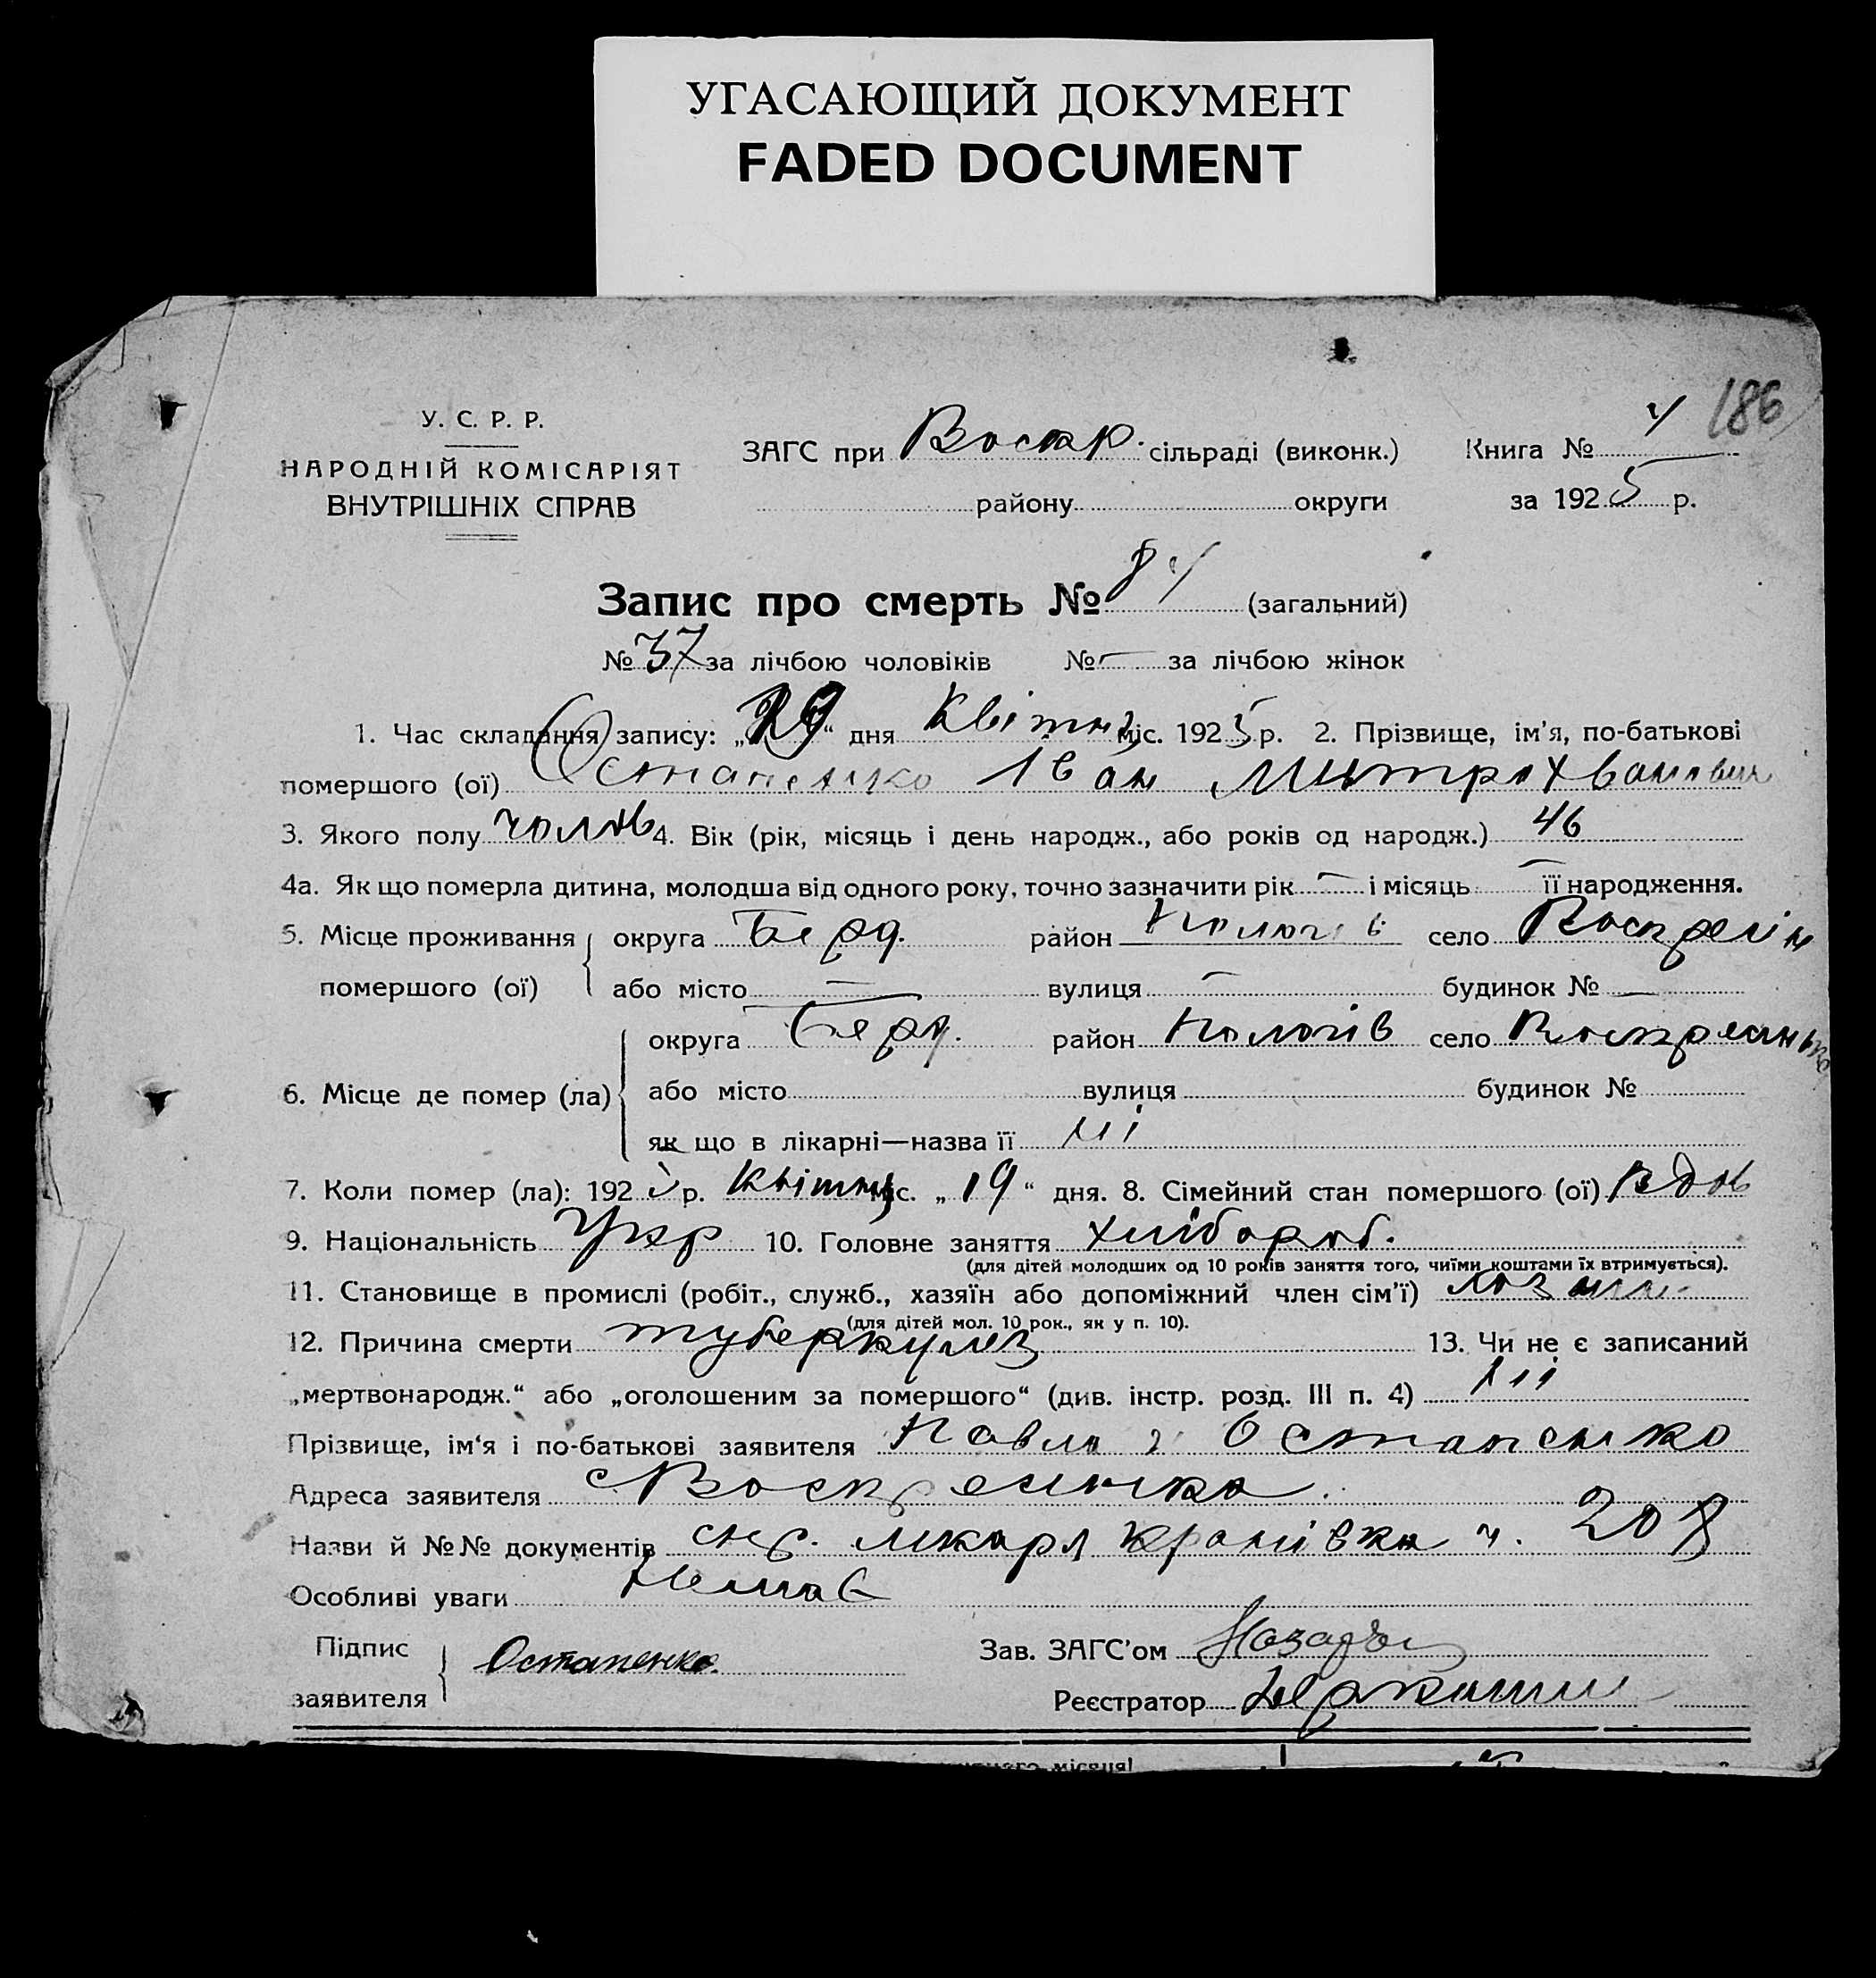 УГАСАЮЩИЙ ДОКУМЕНТ
FADED DOCUMENT
186
У. С. Р. Р.
НАРОДНІЙ КОМІСАРІЯТ
ВНУТРІШНІХ СПРАВ
ЗАГС при Воскр. сільраді (виконк.)
району округи
Книга № 4
за 1925 р.
Запис про смерть № 84 (загальний)
№ 37 за лічбою чоловіків № — за лічбою жінок
1. Час складання запису: „19“ дня Квітня міс. 1925 р. 2. Прізвище, ім'я, по-батькові
помершого (ої) Остапенко Іван Митрохванович
3. Якого полу чолов 4. Вік (рік, місяць і день народж., або років од народж.) 46
4а. Як що померла дитина, молодша від одного року, точно зазначити рік — і місяць — її народження.
5. Місце проживання помершого (ої) округа Берд. район Пологів село Воскресін
або місто — вулиця — будинок № —
6. Місце де помер (ла) округа Берд. район Пологів село Воскресинка
або місто вулиця будинок №
як що в лікарні—назва її ні
7. Коли помер (ла): 1925 р. Квітня міс. „19“ дня. 8. Сімейний стан помершого (ої) Вдов
9. Національність Укр 10. Головне заняття хлібороб.
(для дітей молодших од 10 років заняття того, чиїми коштами їх втримується).
11. Становище в промислі (робіт., служб., хазяїн або допоміжний член сім'ї)
(для дітей мол. 10 рок., як у п. 10).
12. Причина смерти туберкульоз 13. Чи не є записаний
„мертвонародж.“ або „оголошеним за помершого“ (див. інстр. розд. III п. 4) ні
Прізвище, ім'я і по-батькові заявителя Павло Остапенко
Адреса заявителя с Воскресенка.
Назви й №№ документів лікаря 208
Особливі уваги Немає
Підпис заявителя Остапенко
Зав. ЗАГС'ом
Реєстратор
місяця!